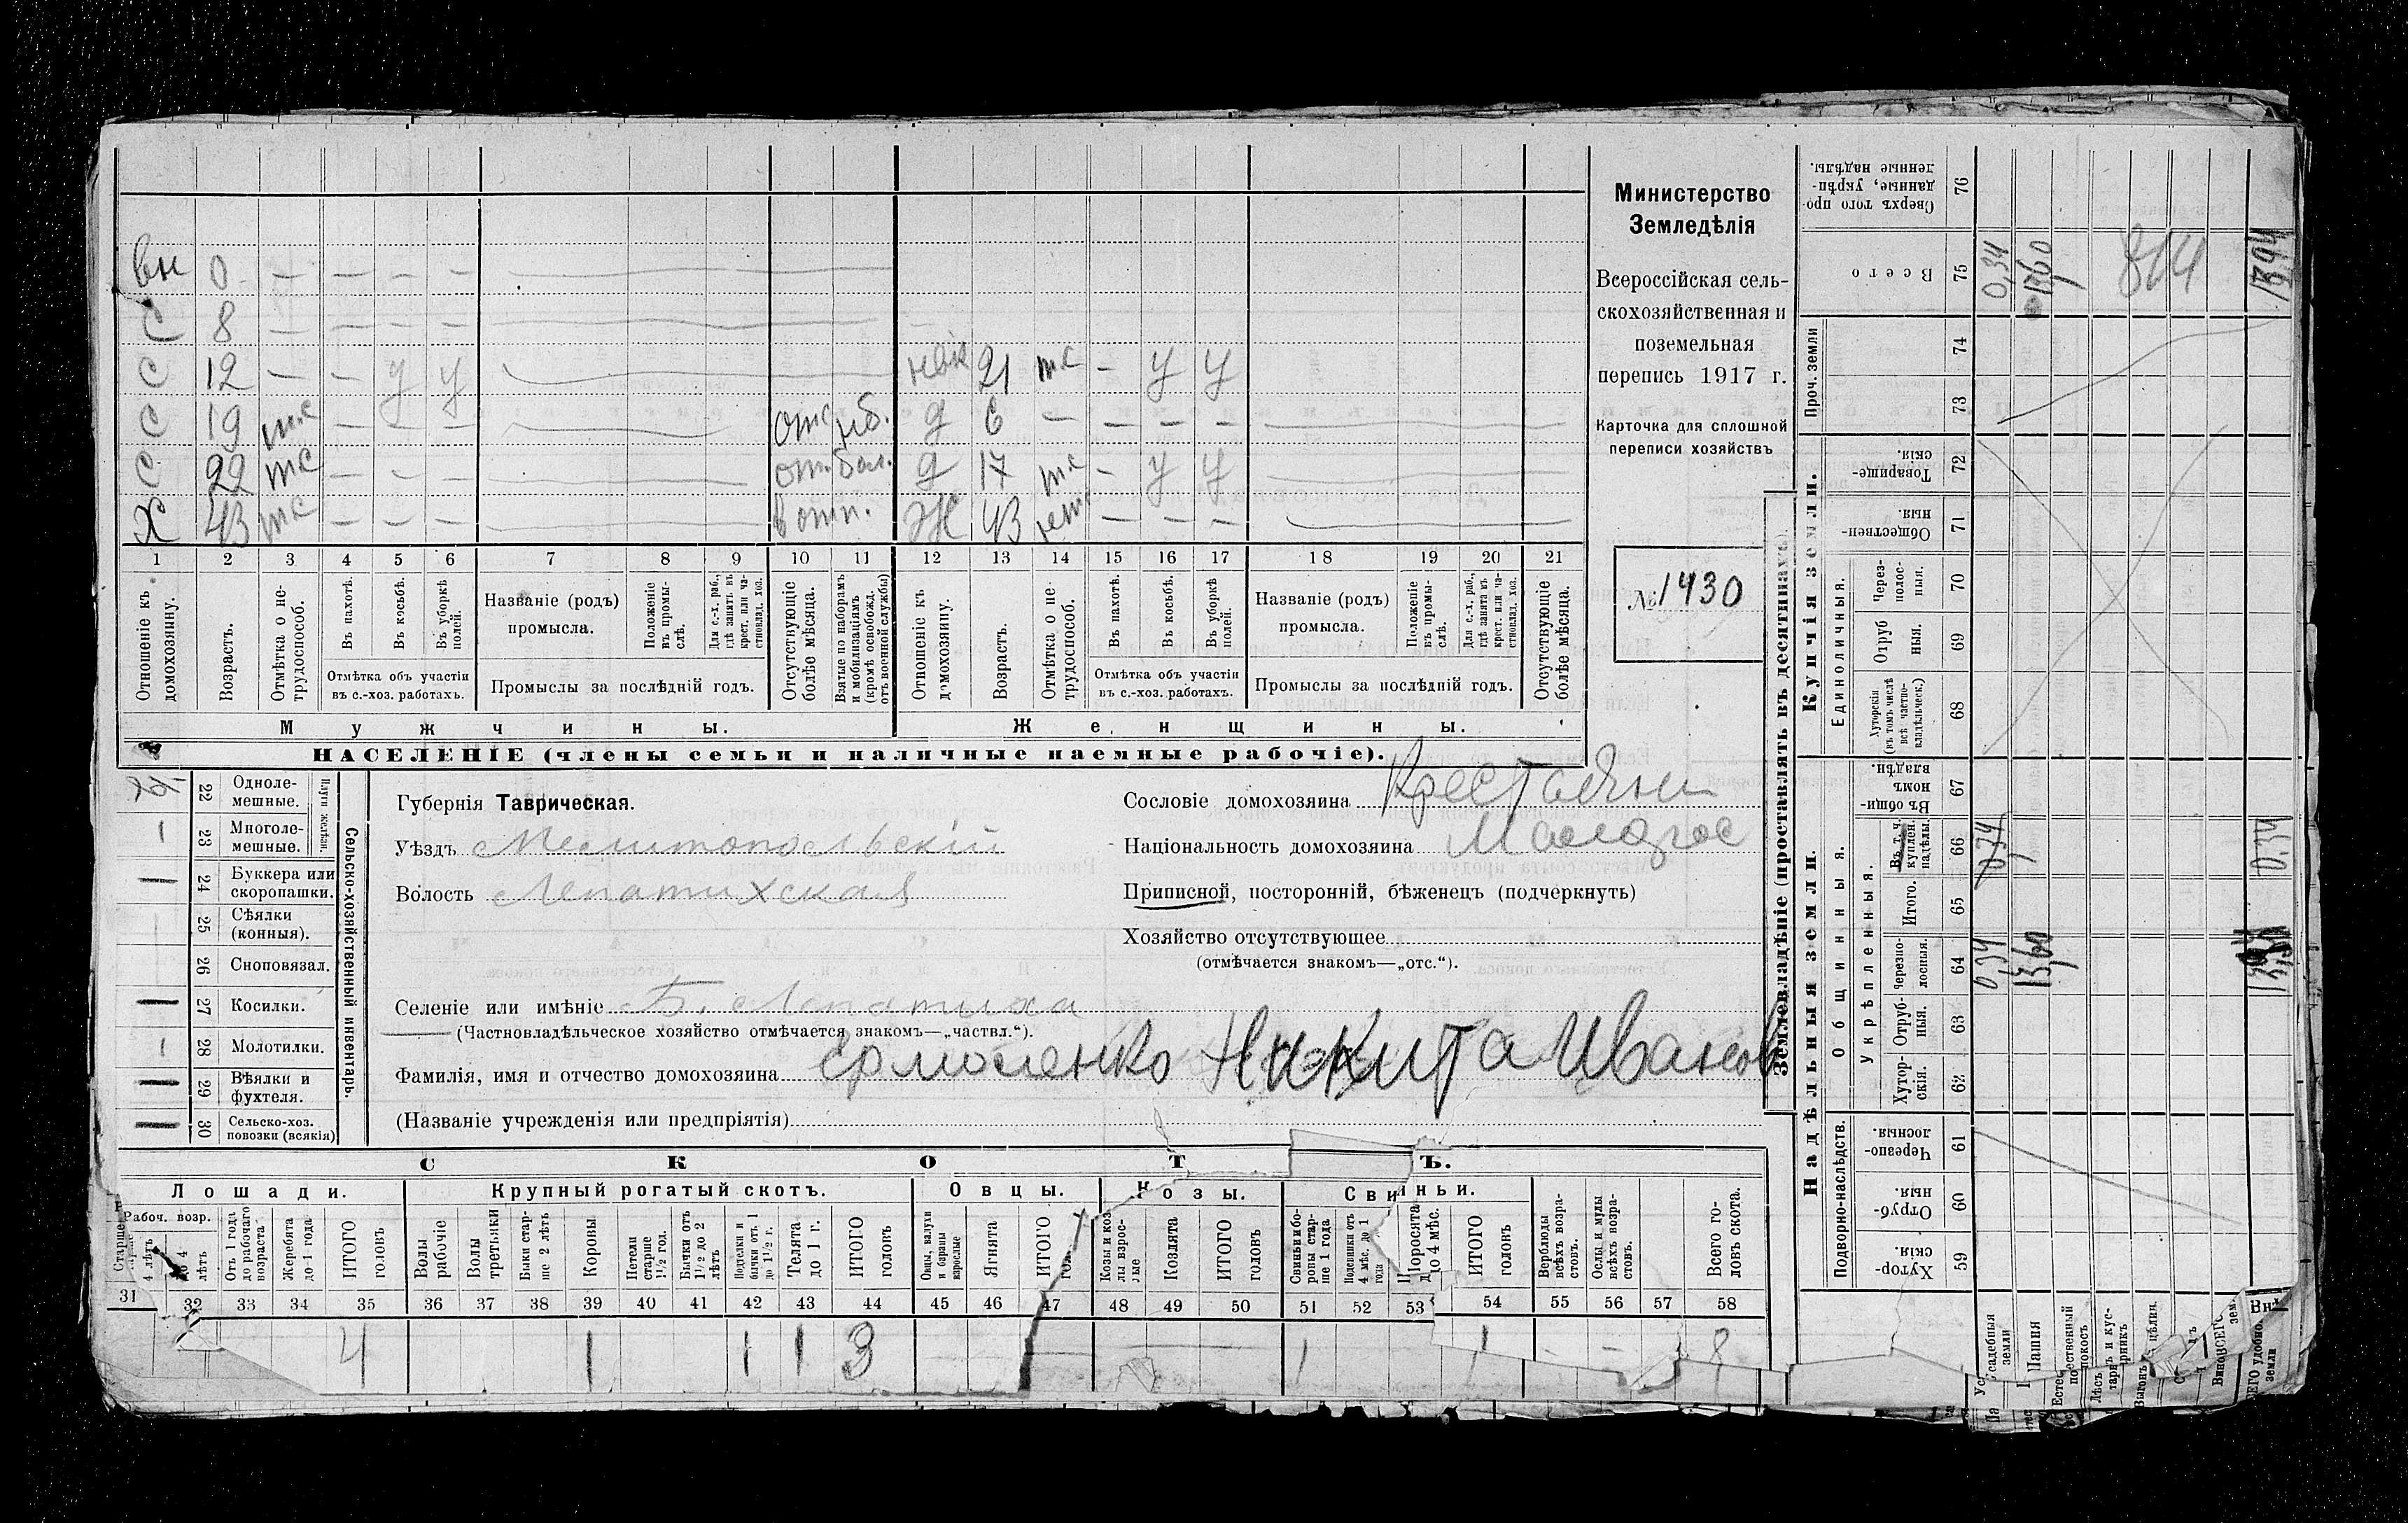 Министерство
Земледѣлія
Всероссійская сель-
скохозяйственная и
поземельная
перепись 1917 г.
Карточка для сплошной
переписи хозяйствъ
№ 1430
вн 0 — — — —
С 8 — — — —
С 12 — — у у
С 19 тс — — — отс нб.
С 22 тс — — — от. бол.
Х 43 тс — — — в отп.
нев 21 тс — у у
д 6 — — — —
д 17 тс — у у
Ж 43 нет — — —
1 2 3 4 5 6 7 8 9 10 11 12 13 14 15 16 17 18 19 20 21
Отношеніе къ домохозяину.
Возрастъ.
Отмѣтка о не-трудоспособ.
Въ пахотѣ.
Въ косьбѣ.
Въ уборкѣ полей.
Отмѣтка объ участіи
въ с.-хоз. работахъ.
Названіе (родъ)
промысла.
Положеніе въ промы-слѣ.
Для с.-х. раб., гдѣ занятъ въ крест. или ча-стновлад. хоз.
Промыслы за послѣдній годъ.
Отсутствующіе болѣе мѣсяца.
Взятые по наборамъ и мобилизаціямъ (кромѣ освобожд. отъ военной службы)
Отношеніе къ домохозяину.
Возрастъ.
Отмѣтка о не-трудоспособ.
Въ пахотѣ.
Въ косьбѣ.
Въ уборкѣ полей.
Отмѣтка объ участіи
въ с.-хоз. работахъ.
Названіе (родъ)
промысла.
Положеніе въ промы-слѣ.
Для с.-х. раб., гдѣ занята въ крест. или ча-стновлад. хоз.
Промыслы за послѣдній годъ.
Отсутствующіе болѣе мѣсяца.
Мужчины.
Женщины.
НАСЕЛЕНІЕ (члены семьи и наличные наемные рабочіе).
Сельско-хозяйственный инвентарь.
22 Одноле-мешные.
23 Многоле-мешные.
24 Буккера или скоропашки.
25 Сѣялки (конныя).
26 Сноповязал.
27 Косилки.
28 Молотилки.
29 Вѣялки и фухтеля.
30 Сельско-хоз. повозки (всякія)
Губернія Таврическая.
Уѣздъ Мелитопольскій
Волость Лепатихская
Селеніе или имѣніе Б. Лепатиха
(Частновладѣльческое хозяйство отмѣчается знакомъ—„частвл.“).
Фамилія, имя и отчество домохозяина Ермоленко Никита Иванов
(Названіе учрежденія или предпріятія)
Сословіе домохозяина Крестьяни
Національность домохозяина Малорос
Приписной, посторонній, бѣженецъ (подчеркнуть)
Хозяйство отсутствующее
(отмѣчается знакомъ—„отс.“).
СКОТЪ.
Лошади. Крупный рогатый скотъ. Овцы. Козы. Свиньи.
Рабоч. возр.
Отъ 1 года до рабочаго возраста
Жеребята до 1 года
ИТОГО головъ
Волы рабочіе
Волы третьяки
Быки стар-ше 2 лѣтъ
Коровы
Нетели старше 1½ год.
Бычки отъ 1½ до 2 лѣтъ
Подтелки и бычки отъ 1 до 1½ г.
Телята до 1 г.
ИТОГО головъ
Овцы, валухи и бараны взрослые
Ягнята
ИТОГО
Козы и коз
Козлята
ИТОГО головъ
Свиньи и бо-ровы стар-ше 1 года
Подсвинки отъ 4 мѣс. до 1 года
Поросята до 4 мѣс.
ИТОГО головъ
Верблюды всѣхъ возра-стовъ.
Ослы и мулы всѣхъ возра-стовъ.
Всего го-ловъ скота.
31 32 33 34 35 36 37 38 39 40 41 42 43 44 45 46 47 48 49 50 51 52 53 54 55 56 57 58
4 1 1 1 3 1 1 8
Землевладѣніе (проставлять въ десятинахъ).
Надѣльныя земли.
Купчія земли.
Подворно-наслѣдств.
Общинныя.
Укрѣпленныя.
Единоличныя.
Проч. земли
59 Хутор-скія.
60 Отруб-ныя.
61 Черезпо-лосныя.
62 Хутор-скія.
63 Отруб-ныя.
64 Черезпо-лосныя. 0,34 13,60
65 Итого.
66 Въ т. ч. куплен. надѣлы. 0,34
67 Въ общин-номъ владѣн.
68 Хуторскія (въ томъ числѣ всѣ частно-владѣльческ.)
69 Отрубныя.
70 Через-полос-ныя.
71 Обществен-ныя.
72 Товарище-скія.
73
74
75 Всего 0,34 13,60 13,94
76 Сверхъ того про-данные, укрѣп-ленные надѣлы.
Пашня